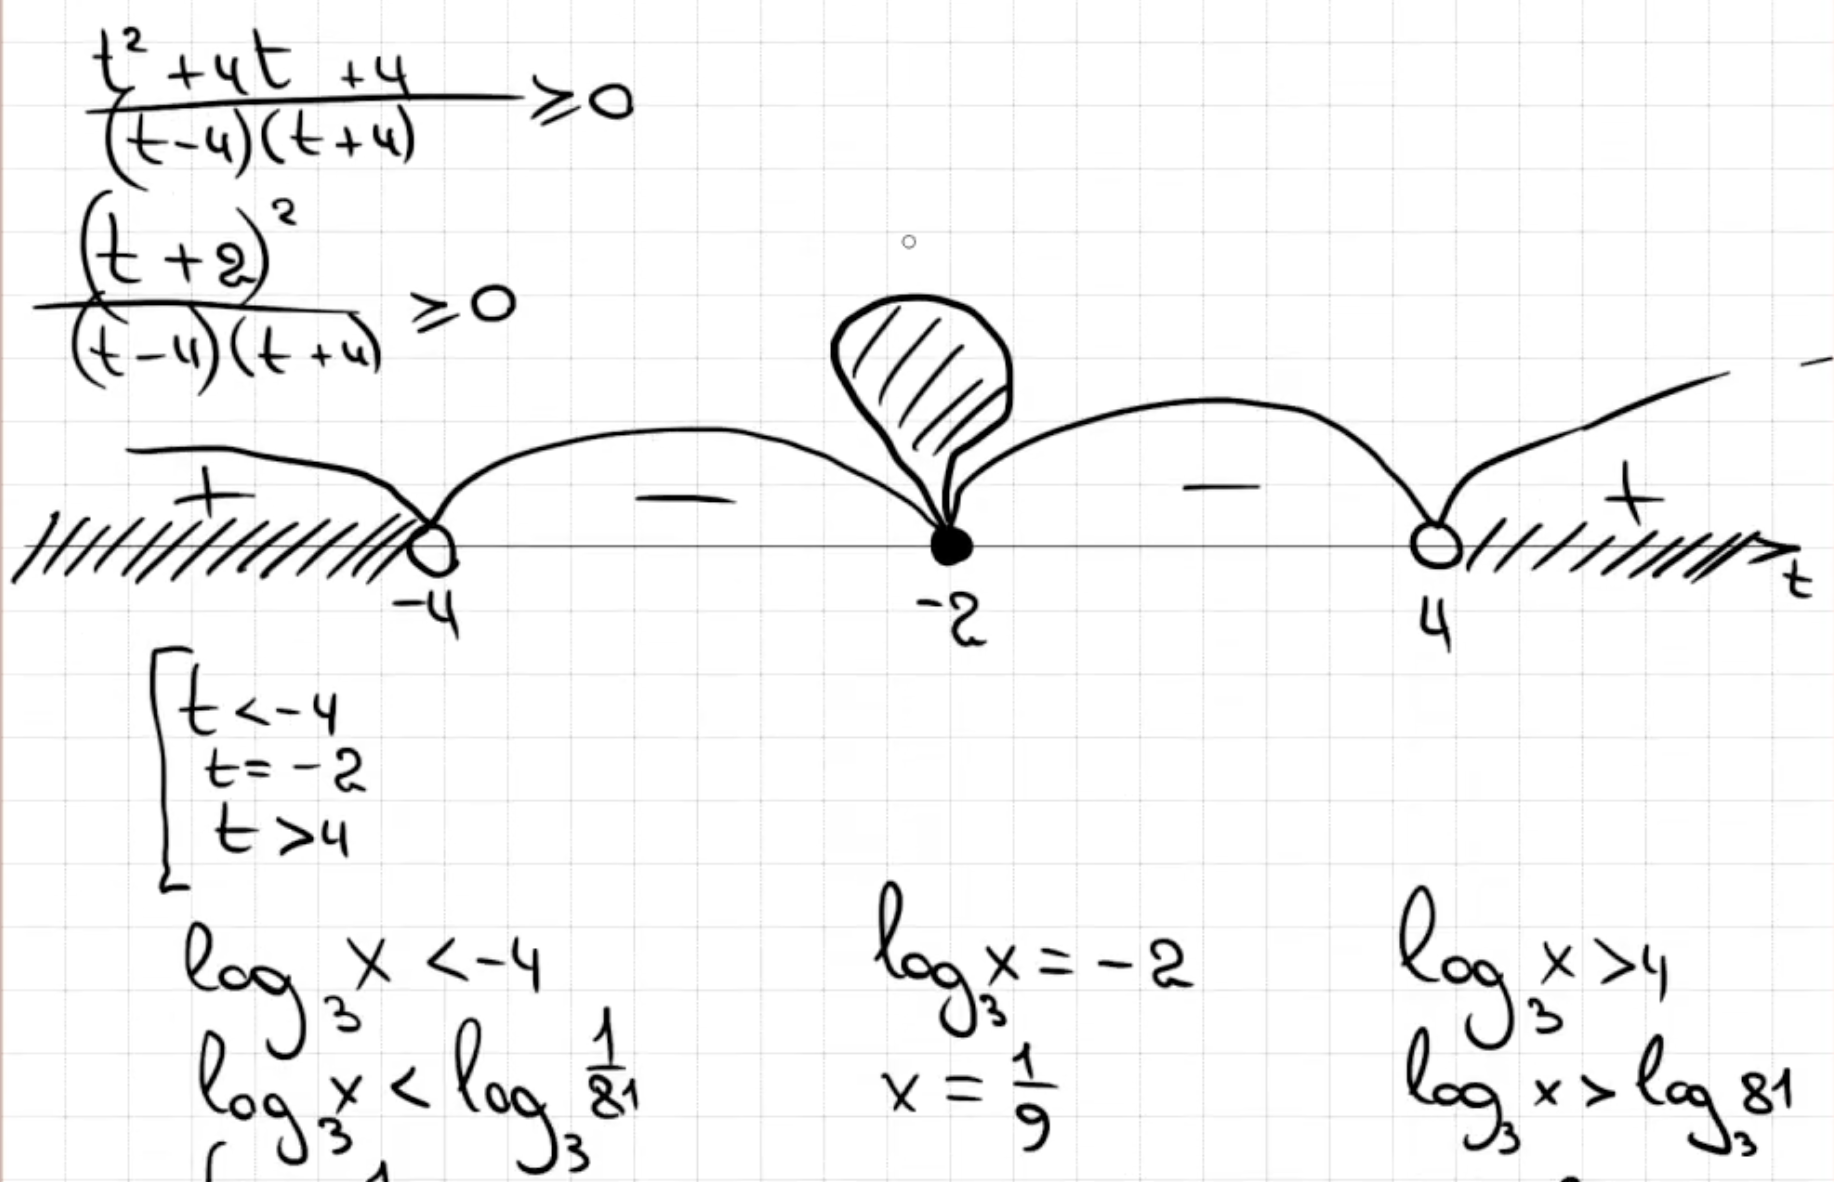 t² + 4t + 4
(t - 4)(t + 4)
≥ 0
(t + 2)²
(t - 4)(t + 4)
≥ 0
+ − − +
-4 -2 4 t
t < -4
t = -2
t > 4
log₃ x < -4 log₃ x = -2 log₃ x > 4
log₃ x < log₃ 1/81 x = 1/9 log₃ x > log₃ 81